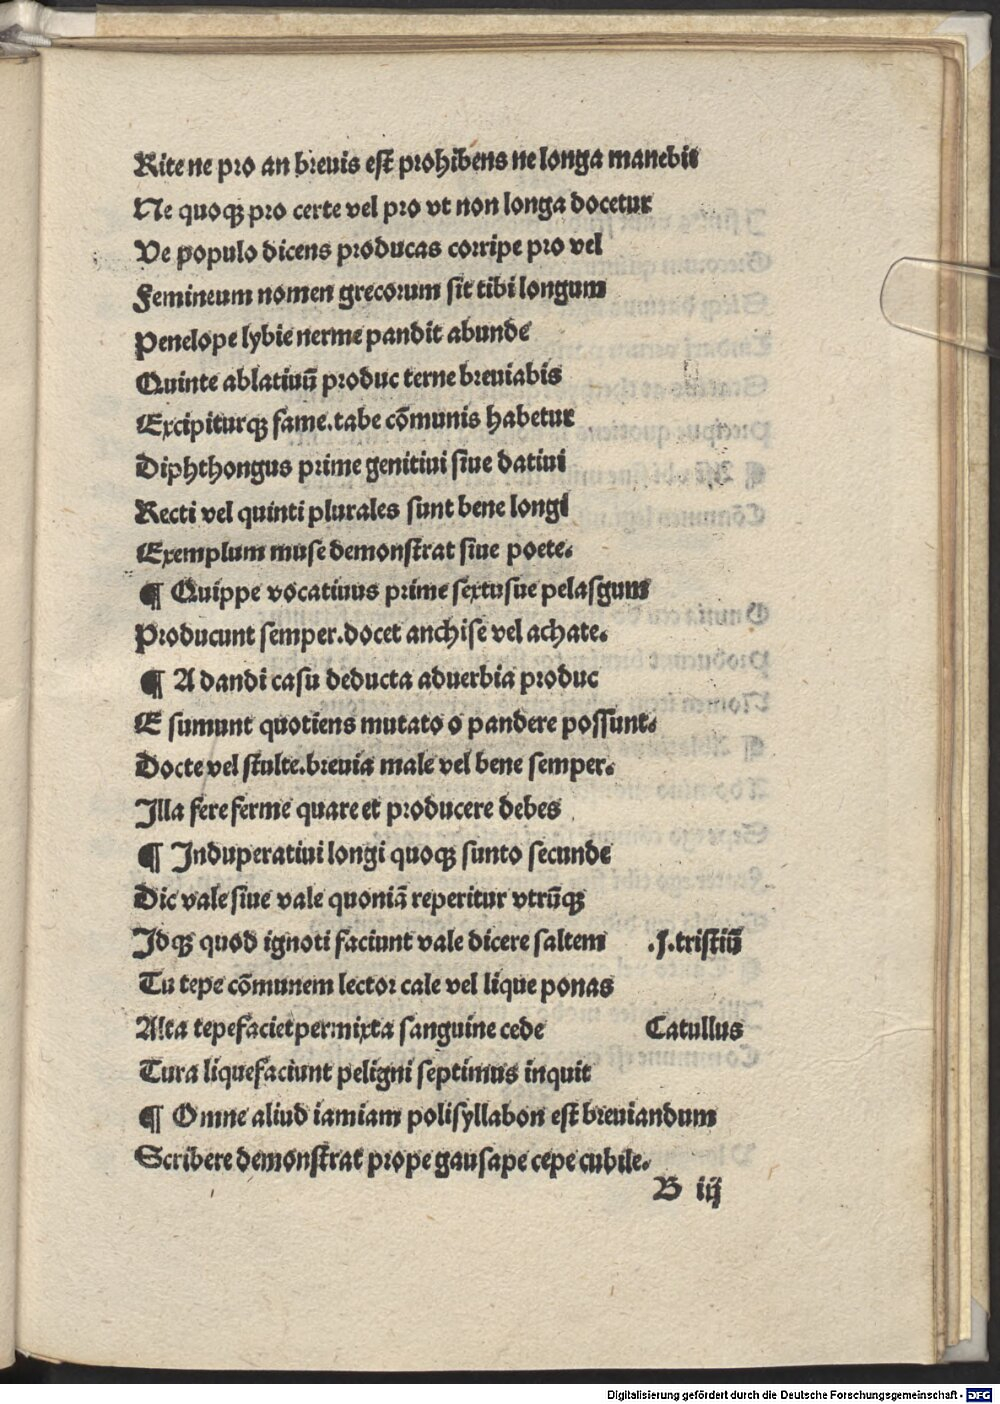 Rite ne pro an breuis est prohibens ne longa manebit
Ne quoqꝫ pro certe vel pro vt non longa docetur
Ve populo dicens producas corripe pro vel
Femineum nomen grecorum sit tibi longum
Penelope lybie nerme pandit abunde
Quinte ablatiuū produc terne breuiabis
Excipiturqꝫ fame.tabe cōmunis habetur
Diphthongus prime genitiui siue datiui
Recti vel quinti plurales sunt bene longi
Exemplum muse demonstrat siue poete.
¶ Quippe vocatiuus prime sextusue pelasgum
Producunt semper.docet anchise vel achate.
¶ A dandi casu deducta aduerbia produc
E sumunt quotiens mutato o pandere possunt.
Docte vel stulte.breuia male vel bene semper.
Illa fere ferme quare et producere debes
¶ Induperatiui longi quoqꝫ sunto secunde
Dic vale siue vale quoniā reperitur vtrūqꝫ
Idqꝫ quod ignoti faciunt vale dicere saltem .I.tristiū
Tu tepe cōmunem lector cale vel lique ponas
Alta tepefaciet permixta sanguine cede Catullus
Tura liquefaciunt peligni septimus inquit
¶ Omne aliud iamiam polisyllabon est breuiandum
Scribere demonstrat prope gausape cepe cubile.
B iij
Digitalisierung gefördert durch die Deutsche Forschungsgemeinschaft - DFG